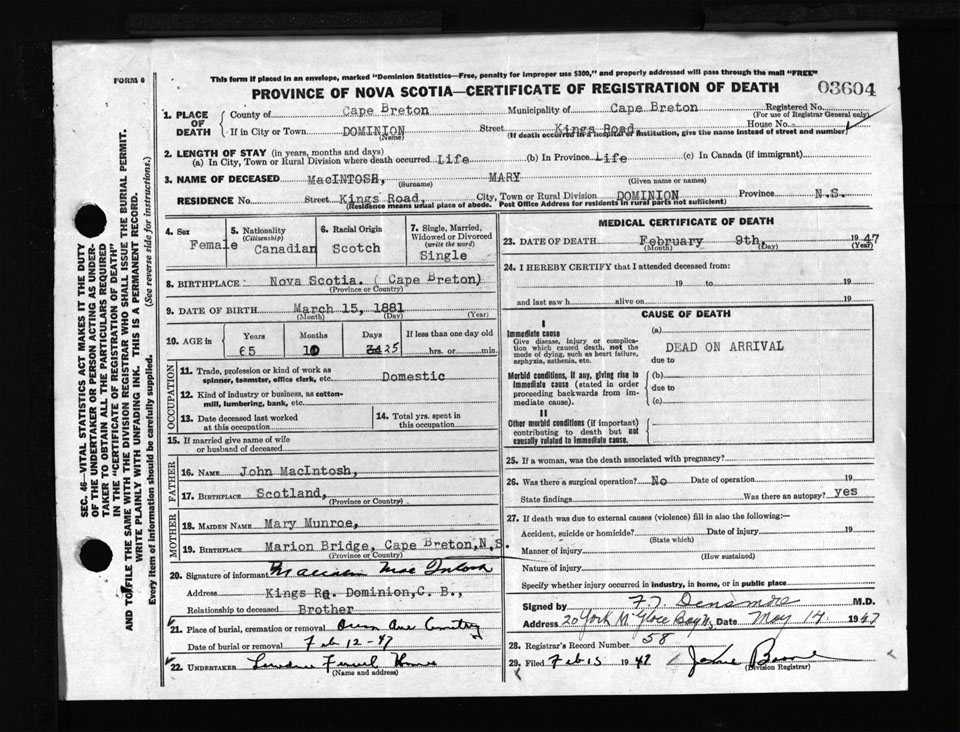 FORM 6
This form if placed in an envelope, marked "Dominion Statistics—Free, penalty for improper use $300," and properly addressed will pass through the mail "FREE"
PROVINCE OF NOVA SCOTIA—CERTIFICATE OF REGISTRATION OF DEATH
03604
1. PLACE OF DEATH
County of Cape Breton Municipality of Cape Breton Registered No.
(For use of Registrar General only)
If in City or Town DOMINION Street Kings Road House No.
(Name) (If death occurred in a hospital or institution, give the name instead of street and number)
2. LENGTH OF STAY (in years, months and days)
(a) In City, Town or Rural Division where death occurred Life (b) In Province Life (c) In Canada (if immigrant)
3. NAME OF DECEASED MacINTOSH, MARY
(Surname) (Given name or names)
RESIDENCE No. Street Kings Road, City, Town or Rural Division DOMINION Province N.S.
(Residence means usual place of abode. Post Office Address for residents in rural parts not sufficient)
4. Sex Female
5. Nationality (Citizenship) Canadian
6. Racial Origin Scotch
7. Single, Married, Widowed or Divorced (write the word) Single
8. BIRTHPLACE Nova Scotia. ( Cape Breton)
(Province or Country)
9. DATE OF BIRTH March 15, 1881
(Month) (Day) (Year)
10. AGE in Years Months Days If less than one day old
65 10 25 hrs. or min.
OCCUPATION
11. Trade, profession or kind of work as spinner, teamster, office clerk, etc. Domestic
12. Kind of industry or business, as cotton-mill, lumbering, bank, etc.
13. Date deceased last worked at this occupation
14. Total yrs. spent in this occupation
15. If married give name of wife or husband of deceased
FATHER
16. NAME John MacIntosh,
17. BIRTHPLACE Scotland,
(Province or Country)
MOTHER
18. MAIDEN NAME Mary Munroe,
19. BIRTHPLACE Marion Bridge, Cape Breton, N.S.
(Province or Country)
20. Signature of informant Mac Intosh
Address Kings Rd. Dominion, C. B.,
Relationship to deceased Brother
21. Place of burial, cremation or removal
Date of burial or removal Feb 12-47
22. UNDERTAKER
(Name and address)
MEDICAL CERTIFICATE OF DEATH
23. DATE OF DEATH February 9th, 1947
(Month) (Day) (Year)
24. I HEREBY CERTIFY that I attended deceased from:
19 to 19
and last saw h alive on 19
CAUSE OF DEATH
I
Immediate cause
Give disease, injury or complication which caused death, not the mode of dying, such as heart failure, asphyxia, asthenia, etc.
(a) DEAD ON ARRIVAL
due to
Morbid conditions, if any, giving rise to immediate cause (stated in order proceeding backwards from immediate cause).
(b)
due to
(c)
II
Other morbid conditions (if important) contributing to death but not causally related to immediate cause.
25. If a woman, was the death associated with pregnancy?
26. Was there a surgical operation? No Date of operation 19
State findings Was there an autopsy? yes
27. If death was due to external causes (violence) fill in also the following:—
Accident, suicide or homicide? Date of injury 19
(State which)
Manner of injury
(How sustained)
Nature of injury
Specify whether injury occurred in industry, in home, or in public place
Signed by Densmore M.D.
Address 20 York Glace Bay Date May 14 1947
28. Registrar's Record Number 58
29. Filed Feb 15 1947
(Division Registrar)
SEC. 46—VITAL STATISTICS ACT MAKES IT THE DUTY
OF THE UNDERTAKER OR PERSON ACTING AS UNDER-
TAKER TO OBTAIN ALL THE PARTICULARS REQUIRED
IN THE "CERTIFICATE OF REGISTRATION OF DEATH"
AND TO FILE THE SAME WITH THE DIVISION REGISTRAR WHO SHALL ISSUE THE BURIAL PERMIT.
WRITE PLAINLY WITH UNFADING INK. THIS IS A PERMANENT RECORD.
Every item of information should be carefully supplied. (See reverse side for instructions.)